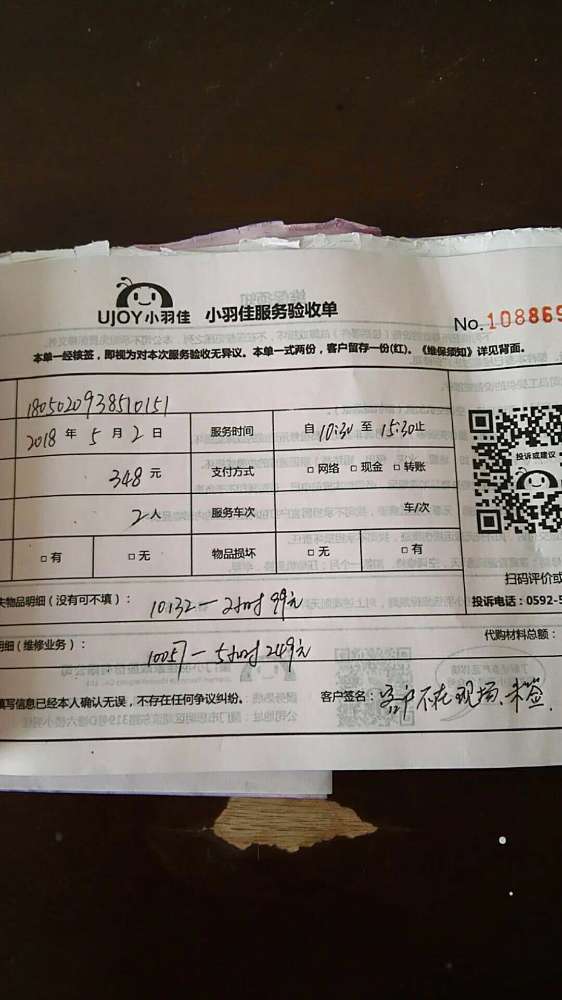 UJOY小羽佳 小羽佳服务验收单
No.108869
本单一经核签，即视为对本次服务验收无异议。本单一式两份，客户留存一份(红)。《维保须知》详见背面。
1805020938510151
2018 年 5 月 2 日 服务时间 自 10:30 至 15:30止
348 元 支付方式 □ 网络 □ 现金 □ 转账
投诉或建议
2人 服务车次 车/次
□ 有 □ 无 物品损坏 □ 无 □ 有
扫码评价或
失物品明细（没有可不填）： 10132－2小时 99元
投诉电话：0592-5
明细（维修业务）： 10057－5小时 249元
代购材料总额：
填写信息已经本人确认无误，不存在任何争议纠纷。 客户签名： 客户不在现场、未签.